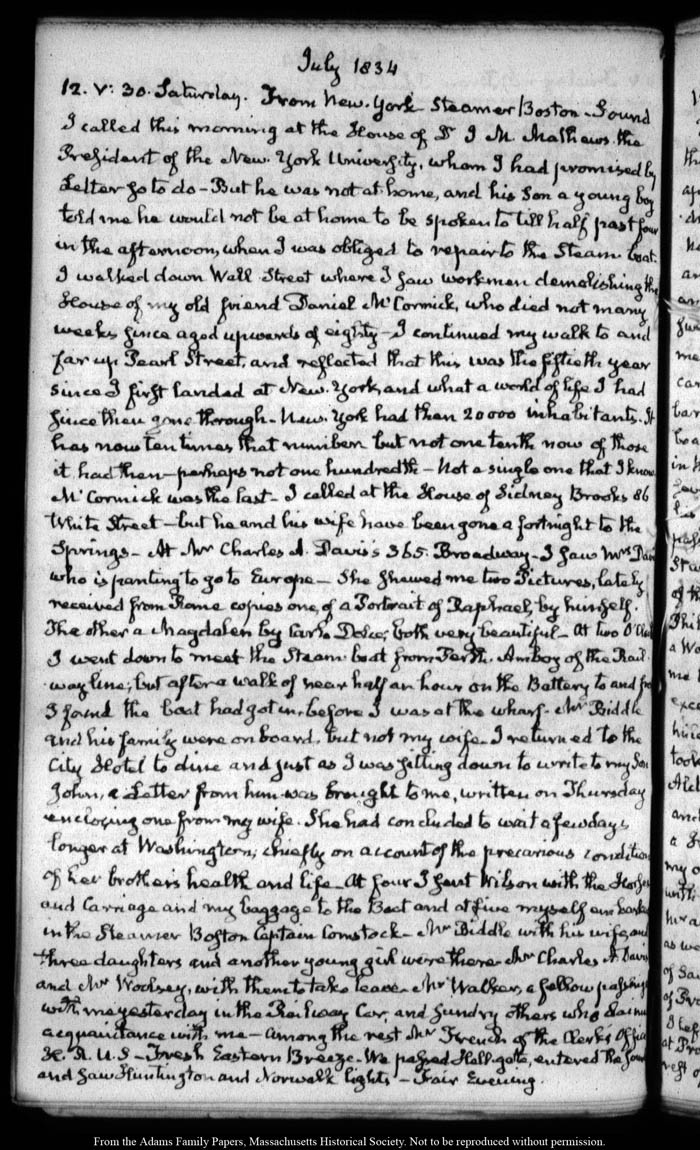 July 1834
12. V: 30. Saturday. From New-York Steamer Boston - Sound
I called this morning at the House of Dr J M. Mathews the
President of the New-York University, whom I had promised by
Letter so to do - But he was not at home, and his Son a young boy
told me he would not be at home to be spoken to till half past four
in the afternoon, when I was obliged to repair to the Steam-boat.
I walked down Wall Street where I saw workmen demolishing the
House of my old friend Daniel McCormick, who died not many
weeks since aged upwards of eighty - I continued my walk to and
far up Pearl Street, and reflected that this was the fiftieth year
since I first landed at New-York, and what a world of life I had
since then gone through - New-York had then 20000 inhabitants. It
has now ten times that number but not one tenth now of those
it had then - perhaps not one hundredth - Not a single one that I know
McCormick was the last - I called at the House of Sidney Brooks 86
White Street - but he and his wife have been gone a fortnight to the
Springs - At Mr Charles A. Davis's 365. Broadway - I saw Mrs Davis
who is panting to go to Europe - She shewed me two Pictures, lately
received from Rome copies one, of a Portrait of Raphael, by himself.
The other a Magdalen by Carlo Dolce; both very beautiful - At two O'Clock
I went down to meet the Steam-boat from Perth-Amboy of the Rail-
way line; but after a walk of near half an hour on the Battery to and fro
I found the boat had got in before I was at the wharf - Mr Biddle
and his family were on board, but not my wife - I returned to the
City Hotel to dine and just as I was sitting down to write to my Son
John, a Letter from him was brought to me, written on Thursday
enclosing one from my wife. She had concluded to wait a few days
longer at Washington, chiefly on account of the precarious condition
of her brother's health and life - At four I sent Wilson with the Horses
and Carriage and my baggage to the Boat and at five myself embarked
in the Steamer Boston Captain Comstock - Mr Biddle with his wife and
three daughters and another young girl were there - Mr Charles A. Davis
and Mr Woolsey, with them to take leave - Mr Walker, a fellow passenger
with me yesterday in the Railway Car, and sundry others who claim
acquaintance with me - Among the rest Mr French of the Clerk's Office
H. R. U.S - Fresh Eastern Breeze - We passed Hell-gate, entered the Sound
and saw Huntington and Norwalk lights - Fair Evening.
From the Adams Family Papers, Massachusetts Historical Society. Not to be reproduced without permission.